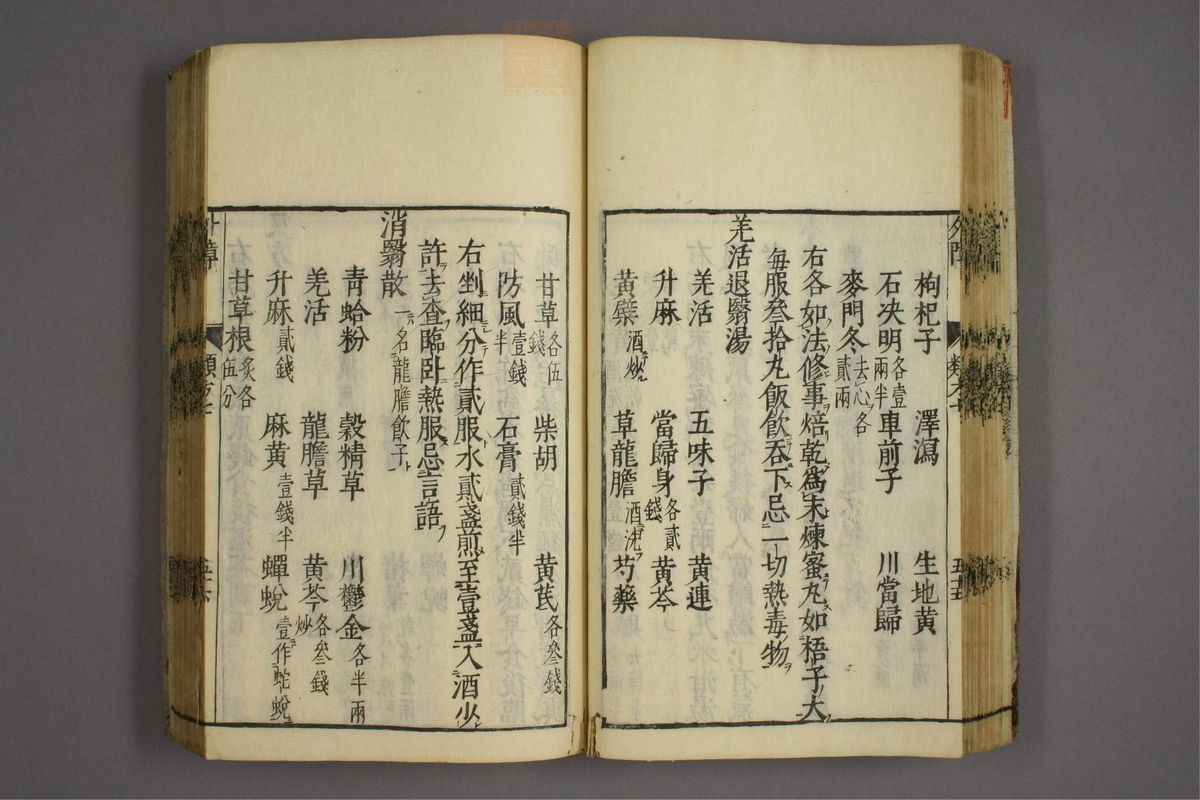 枸杞子 澤瀉 生地黄
石决明各壹兩半 車前子 川當歸
麥門冬去心各貳兩
右各如法修事焙乾爲末煉蜜丸如梧子大
毎服叁拾丸飯飲吞下忌一切熱毒物
羌活退翳湯
羌活 五味子 黄連
升麻 當歸身各貳錢 黄芩
黄檗酒炒 草龍膽酒洗 芍藥
甘草各伍錢 柴胡 黄芪各叁錢
防風壹錢半 石膏貳錢半
右剉細分作貳服水貳盞煎至壹盞入酒少
許去查臨卧熱服忌言語
消翳散一名龍膽飲子
青蛤粉 穀精草 川鬱金各半兩
羌活 龍膽草 黄芩炒各叁錢
升麻貳錢 麻黄壹錢半 蟬蛻壹作蛇蛻
甘草根炙各伍分